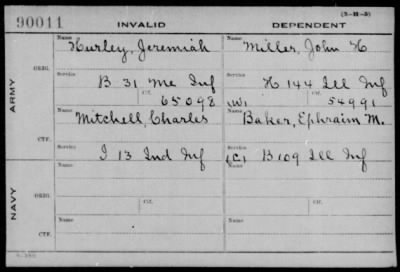 (3-11-5)
90011 INVALID DEPENDENT
Name Hurley, Jeremiah Name Miller, John H
ORIG. Service B 31 Me Inf Service H 144 Ill Inf
Ctf. 65098 (W) Ctf. 54991
ARMY
Name Mitchell, Charles Name Baker, Ephraim M.
CTF. Service I 13 Ind Inf Service (C) B 109 Ill Inf
Name Name
ORIG. Service Ctf. Service Ctf.
NAVY
Name Name
CTF. Service Service